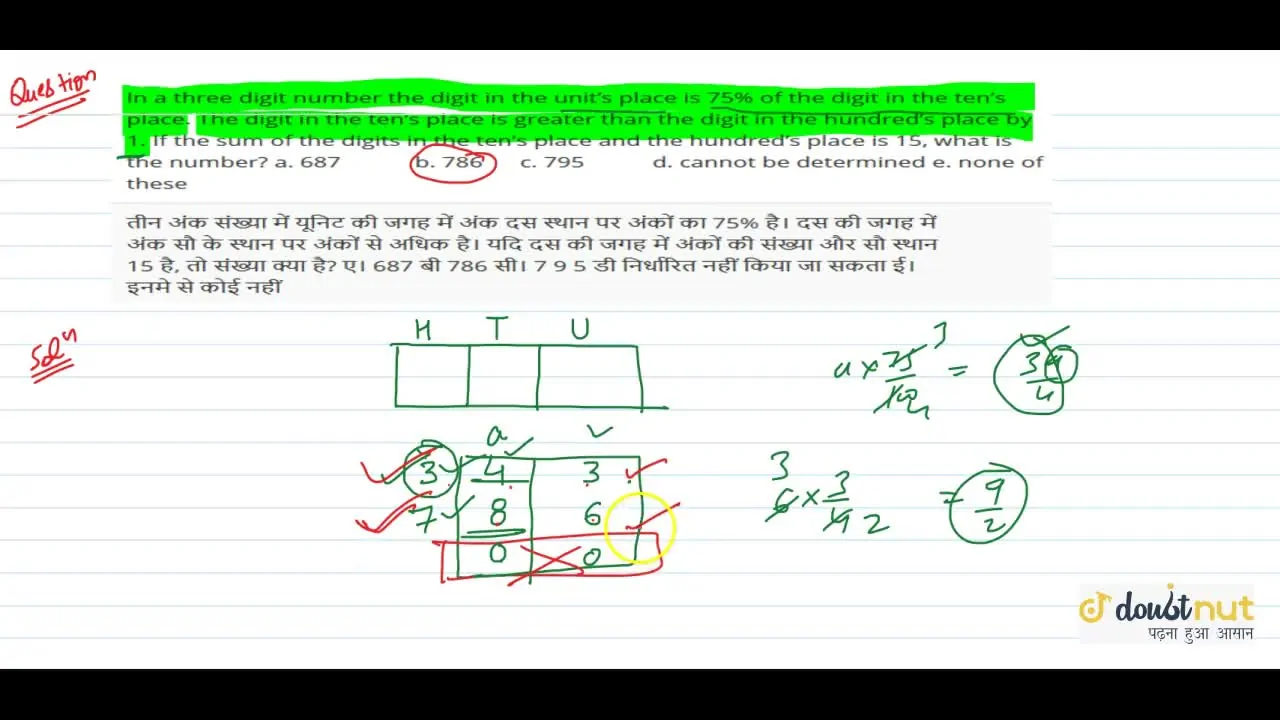 Question
In a three digit number the digit in the unit's place is 75% of the digit in the ten's
place. The digit in the ten's place is greater than the digit in the hundred's place by
1. If the sum of the digits in the ten's place and the hundred's place is 15, what is
the number? a. 687 b. 786 c. 795 d. cannot be determined e. none of
these
तीन अंक संख्या में यूनिट की जगह में अंक दस स्थान पर अंकों का 75% है। दस की जगह में
अंक सौ के स्थान पर अंकों से अधिक है। यदि दस की जगह में अंकों की संख्या और सौ स्थान
15 है, तो संख्या क्या है? ए। 687 बी 786 सी। 7 9 5 डी निर्धारित नहीं किया जा सकता ई।
इनमे से कोई नहीं
Solⁿ
H T U
a × 75/100 3 4 = 3a/4
a
3 4 3
7 8 6
0 0
3
6 × 3/4 2 = 9/2
doubtnut
पढ़ना हुआ आसान